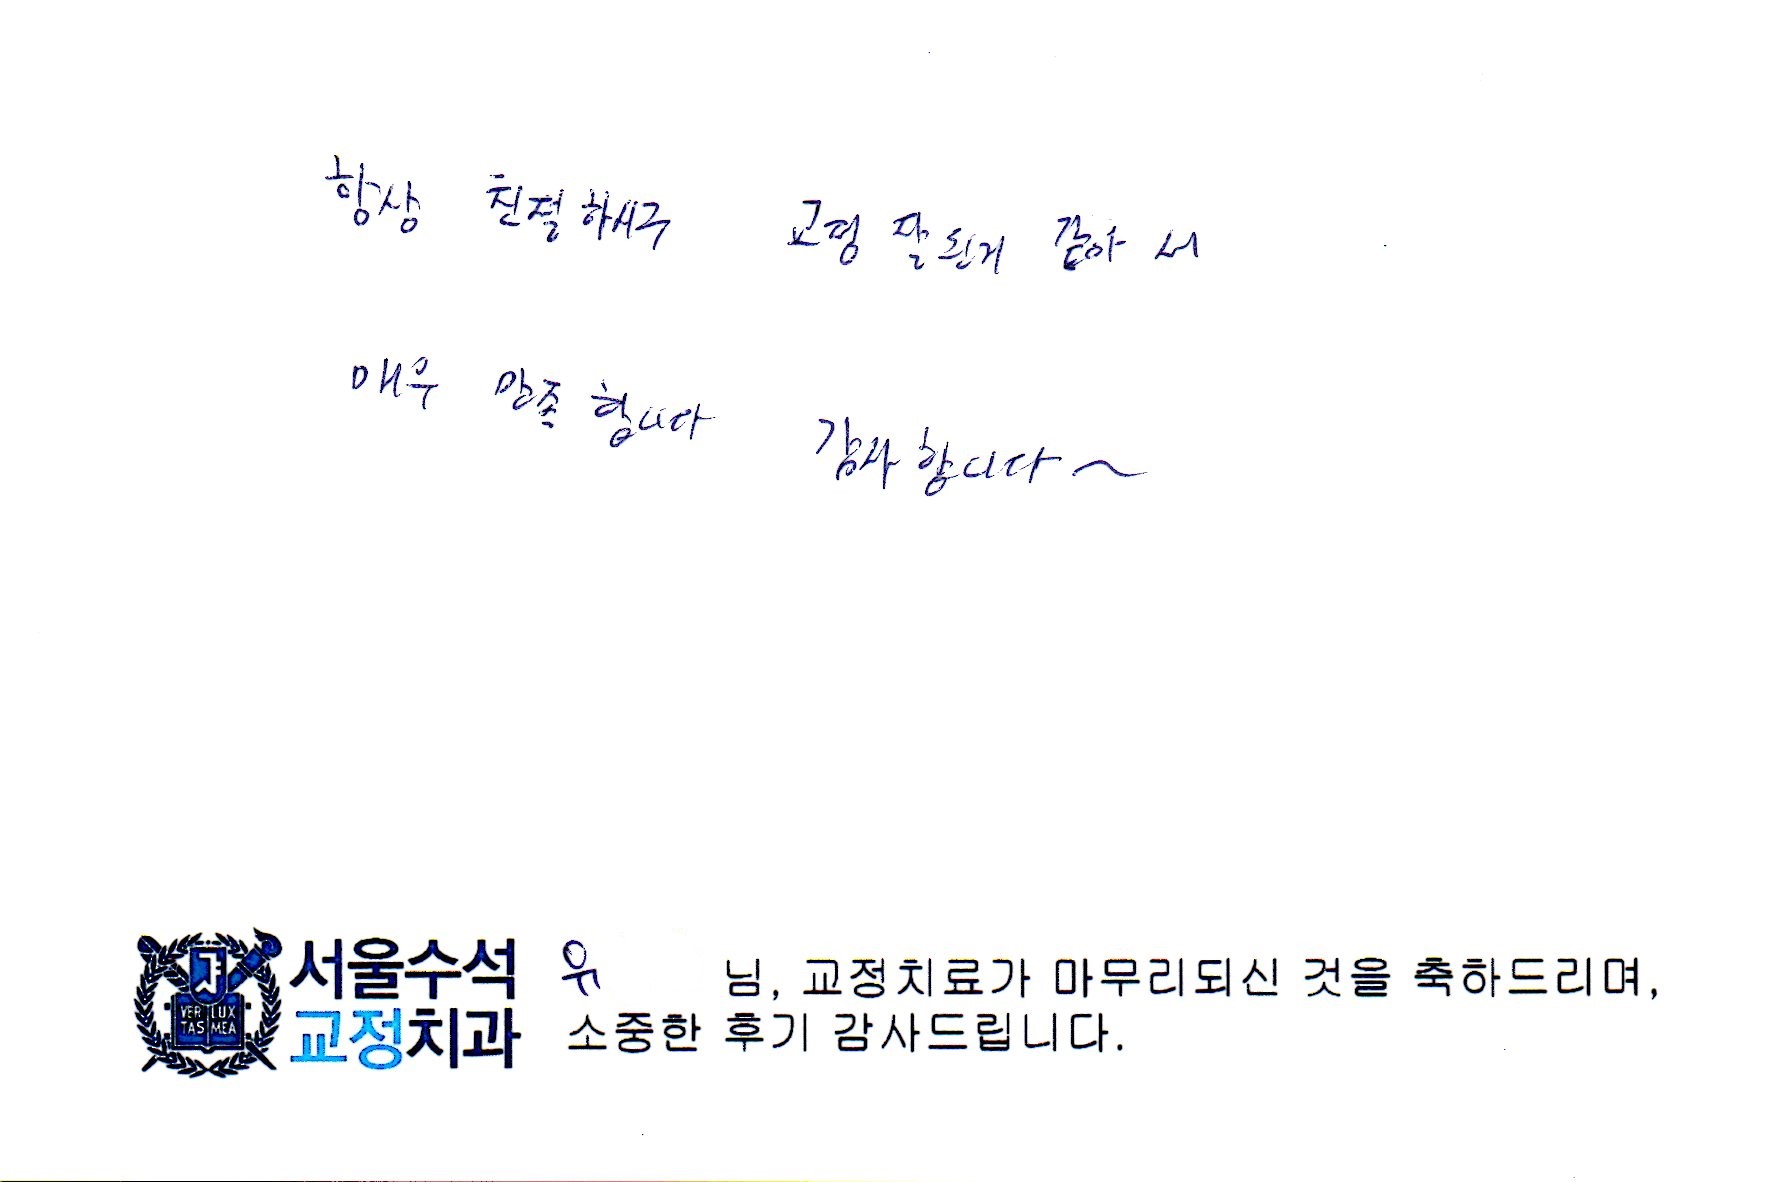 항상 친절하시구 교정 잘 된게 같아서
매우 만족합니다 감사합니다~
서울수석
교정치과
VERI LUX
TAS MEA
유 님, 교정치료가 마무리되신 것을 축하드리며,
소중한 후기 감사드립니다.